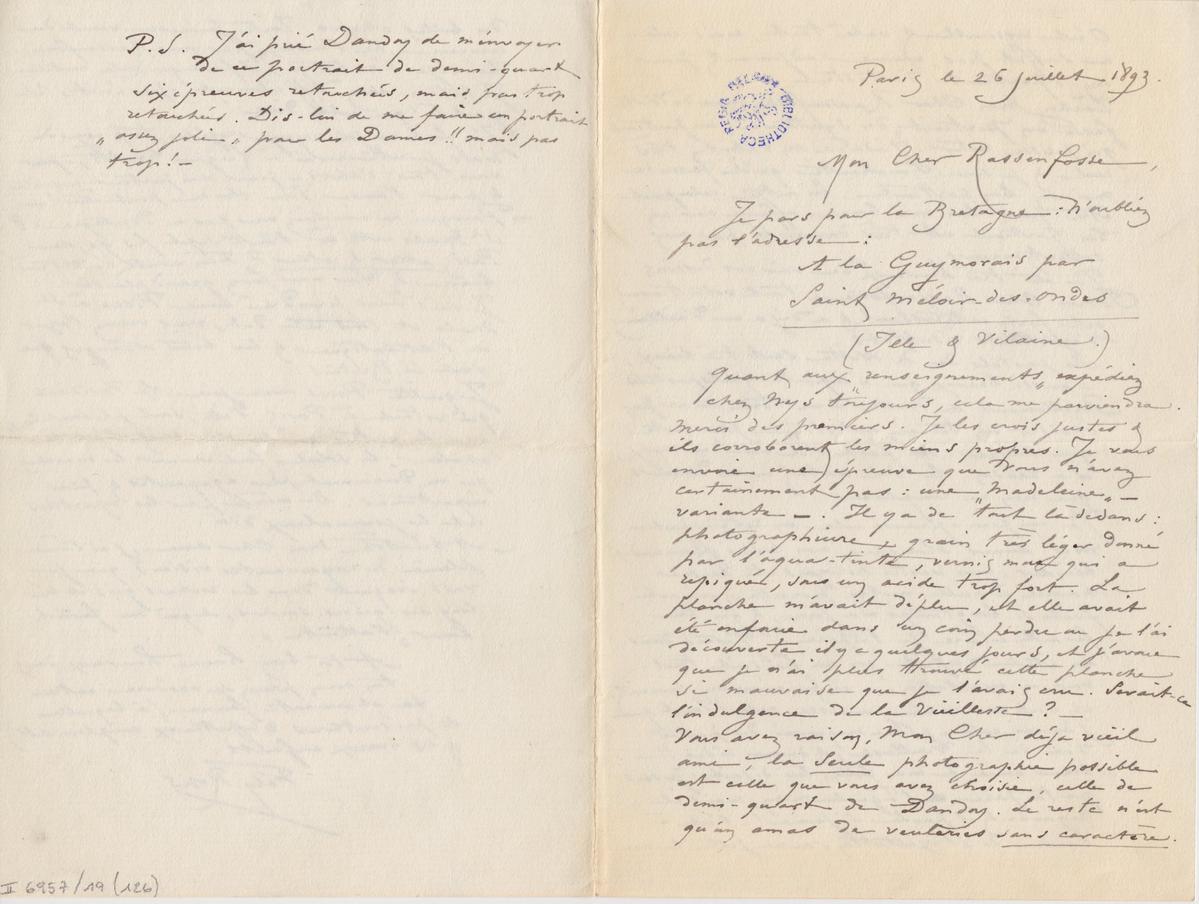 P.S. J'ai prié Dandoy de m'envoyer
de ce portrait de demi-quart
six épreuves retouchés, mais pas trop
retouchés. Dis-lui de me faire un portrait
„ assez joli „ pour les Dames !! mais pas
trop! —
II 6957/19 (126)
BIBLIOTHECA REGIA BELGICA
Paris le 26 juillet 1893.
Mon Cher Rassenfosse,
Je pars pour la Bretagne : N'oubliez
pas l'adresse :
A la Guymorais par
Saint Méloir-des-ondes
(Ille & Vilaine.)
Quant aux "renseignements" expédiez
chez Nys toujours, cela me parviendra.
Merci des premiers. Je les crois justes &
ils corroborent les miens propres. Je vous
envoie une épreuve que vous n'avez
certainement pas : une "Madeleine„ —
variante —. Il y a de tout là dedans :
photogravure, grain très léger donné
par l'aqua-tinte, vernis mou qui a
repiqué, sous un acide trop fort. La
planche m'avait déplu, et elle avait
été enfouie dans un coin perdu ou je l'ai
découverte il y a quelques jours, et j'avoue
que je n'ai plus trouvé cette planche
si mauvaise que je l'avais cru. Serait-ce
l'indulgence de la vieillesse ? —
Vous avez raison, Mon Cher déja vieil
ami, la Seule photographie possible
est celle que vous avez choisie, celle de
demi-quart de Dandoy. Le reste n'est
qu'un amas de veuleries sans caractère.